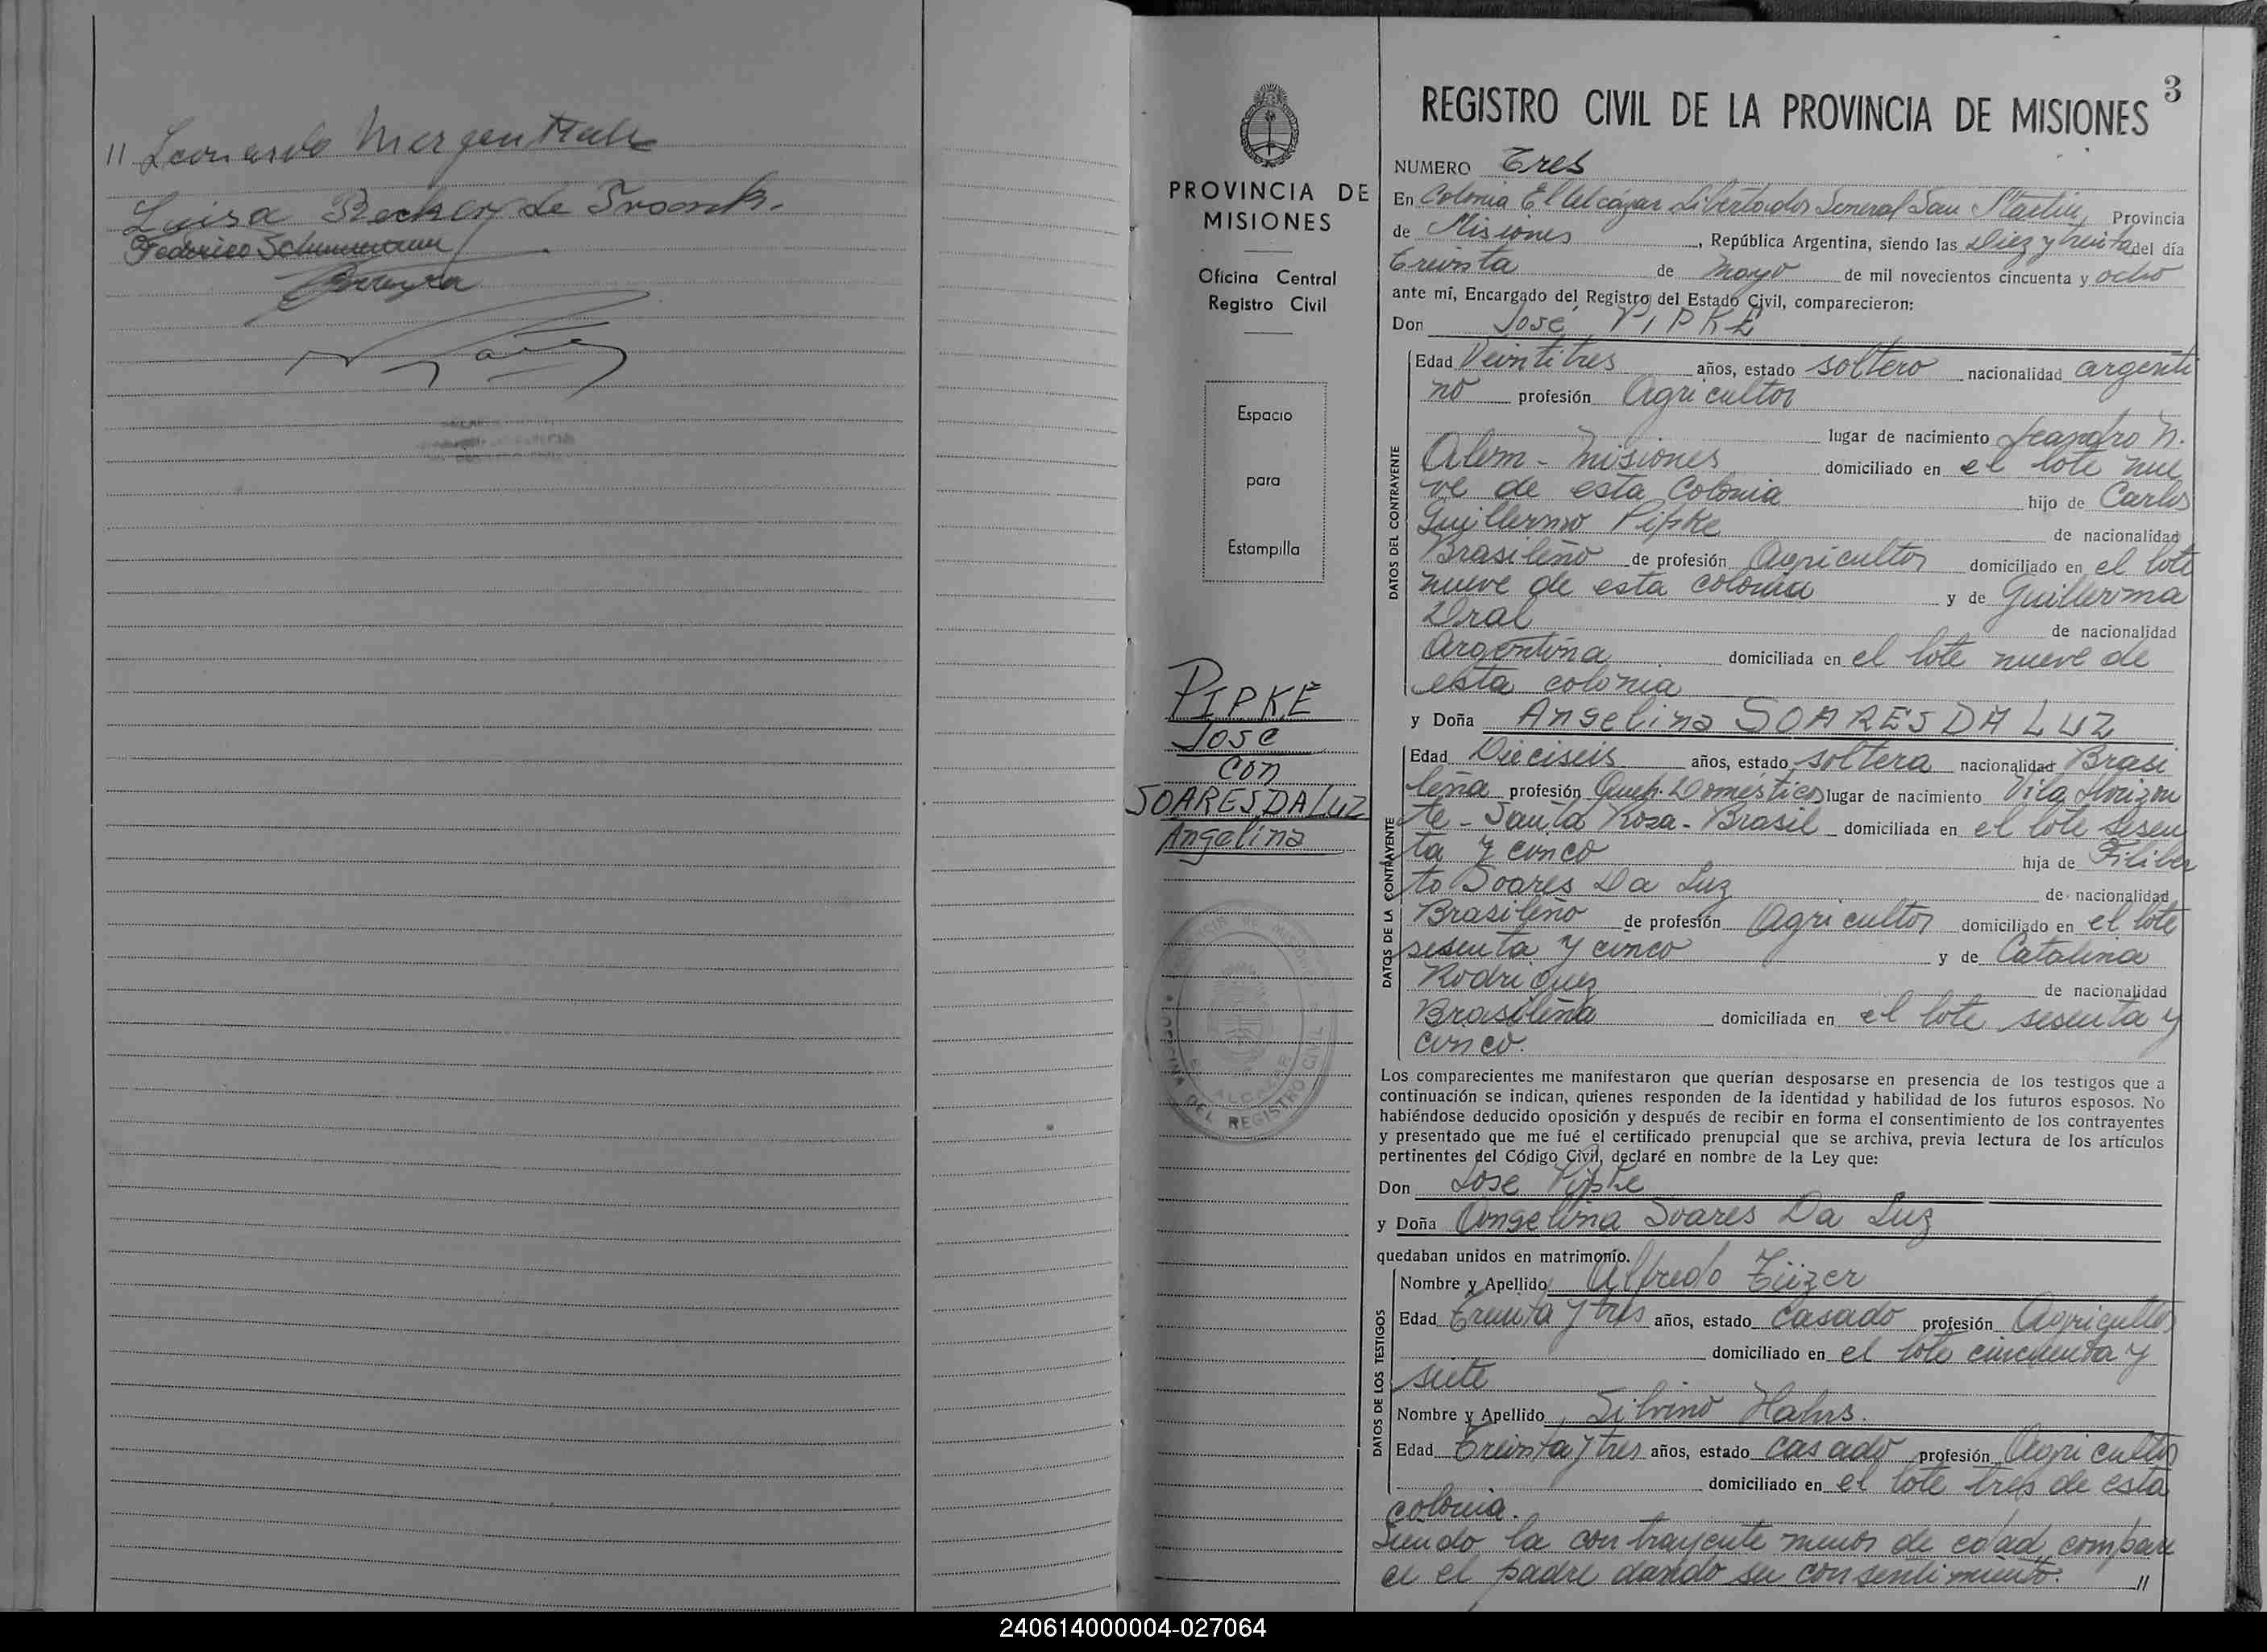 11 Leonardo Mergenthale
Luisa Becker de Troenk.
Federico Schummann
3
REGISTRO CIVIL DE LA PROVINCIA DE MISIONES
PROVINCIA DE
MISIONES
Oficina Central
Registro Civil
Espacio
para
Estampilla
PIPKE
José
con
SOARES DA LUZ
Angelina
OFICINA DEL REGISTRO CIVIL
ALCAZAR
NUMERO Tres
En Colonia El Alcázar Libertador General San Martin, Provincia
de Misiones, República Argentina, siendo las Diez y treinta del día
treinta de mayo de mil novecientos cincuenta y ocho
ante mí, Encargado del Registro del Estado Civil, comparecieron:
Don José PIPKE
DATOS DEL CONTRAYENTE
Edad Veintitres años, estado soltero nacionalidad argenti
no profesión Agricultor
lugar de nacimiento Leandro N.
Alem - Misiones domiciliado en el lote nue
ve de esta Colonia hijo de Carlos
Guillermo Pipke de nacionalidad
Brasileño de profesión Agricultor domiciliado en el lote
nueve de esta colonia y de Guillerma
Dral de nacionalidad
Argentina domiciliada en el lote nueve de
esta colonia
y Doña Angelina SOARES DA LUZ
DATOS DE LA CONTRAYENTE
Edad Dieciseis años, estado soltera nacionalidad Brasi
leña profesión Queh. Domésticos lugar de nacimiento Vila Horizon
te - Santa Rosa - Brasil domiciliada en el lote sesen
ta y cinco hija de Filiber
to Soares Da Luz de nacionalidad
Brasileño de profesión Agricultor domiciliado en el lote
sesenta y cinco y de Catalina
Rodriguez de nacionalidad
Brasileña domiciliada en el lote sesenta y
cinco.
Los comparecientes me manifestaron que querían desposarse en presencia de los testigos que a
continuación se indican, quienes responden de la identidad y habilidad de los futuros esposos. No
habiéndose deducido oposición y después de recibir en forma el consentimiento de los contrayentes
y presentado que me fué el certificado prenupcial que se archiva, previa lectura de los artículos
pertinentes del Código Civil, declaré en nombre de la Ley que:
Don José Pipke
y Doña Angelina Soares Da Luz
quedaban unidos en matrimonio.
DATOS DE LOS TESTIGOS
Nombre y Apellido Alfredo Züzer
Edad Treinta y tres años, estado Casado profesión Agricultor
domiciliado en el lote cincuenta y
siete
Nombre y Apellido Silvino Hahs.
Edad Treinta y tres años, estado casado profesión Agricultor
domiciliado en el lote tres de esta
colonia.
Siendo la contrayente menor de edad compare
ce el padre dando su consentimiento. //
240614000004-027064